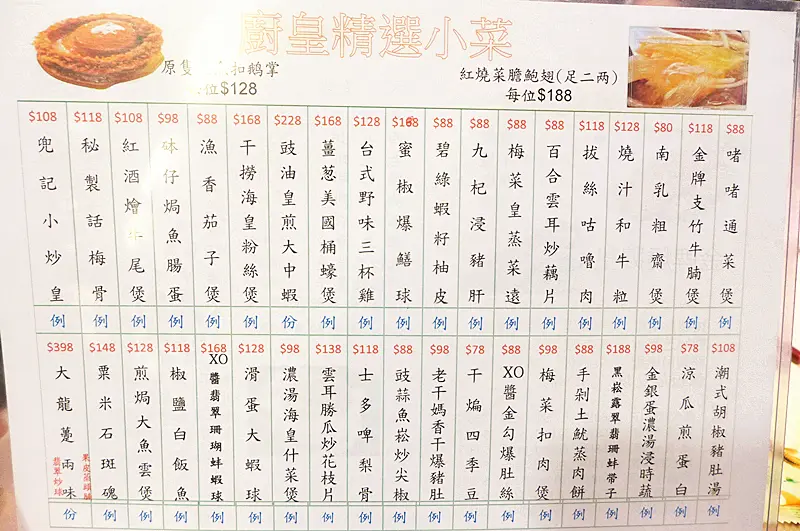 廚皇精選小菜
原隻 扣鵝掌
位$128
紅燒菜膽鮑翅(足二両)
每位$188
$108 兜記小炒皇 例
$118 秘製話梅骨 例
$108 紅酒燴牛尾煲 例
$98 砵仔焗魚腸蛋 例
$88 漁香茄子煲 例
$168 干撈海皇粉絲煲 例
$228 豉油皇煎大中蝦 份
$168 薑葱美國桶蠔煲 例
$128 台式野味三杯雞 例
蜜椒爆鱔球 例
$88 碧綠蝦籽柚皮 例
$88 九杞浸豬肝 例
$88 梅菜皇蒸菜遠 例
$88 百合雲耳炒藕片 例
$118 拔絲咕嚕肉 例
$128 燒汁和牛粒 例
$80 南乳粗齋煲 例
$118 金牌支竹牛腩煲 例
$88 啫啫通菜煲 例
$398 大龍躉両味 翡翠炒球 份
$148 粟米石斑魂 例
$128 煎焗大魚雲煲 例
$118 椒鹽白飯魚 例
$168 XO醬翡翠珊瑚蚌蝦球 例
$128 滑蛋大蝦球 例
$98 濃湯海皇什菜煲 例
$138 雲耳勝瓜炒花枝片 例
$118 士多啤梨骨 例
$88 豉蒜魚崧炒尖椒 例
$98 老干媽香干爆豬肚 例
$78 干煸四季豆 例
$88 XO醬金勾爆肚絲 例
$98 梅菜扣肉煲 例
$88 手剁土魷蒸肉餅 例
$188 黑崧露翠翡珊蚌帶子 例
$98 金銀蛋濃湯浸時蔬 例
$78 涼瓜煎蛋白 例
$108 潮式胡椒豬肚湯 例